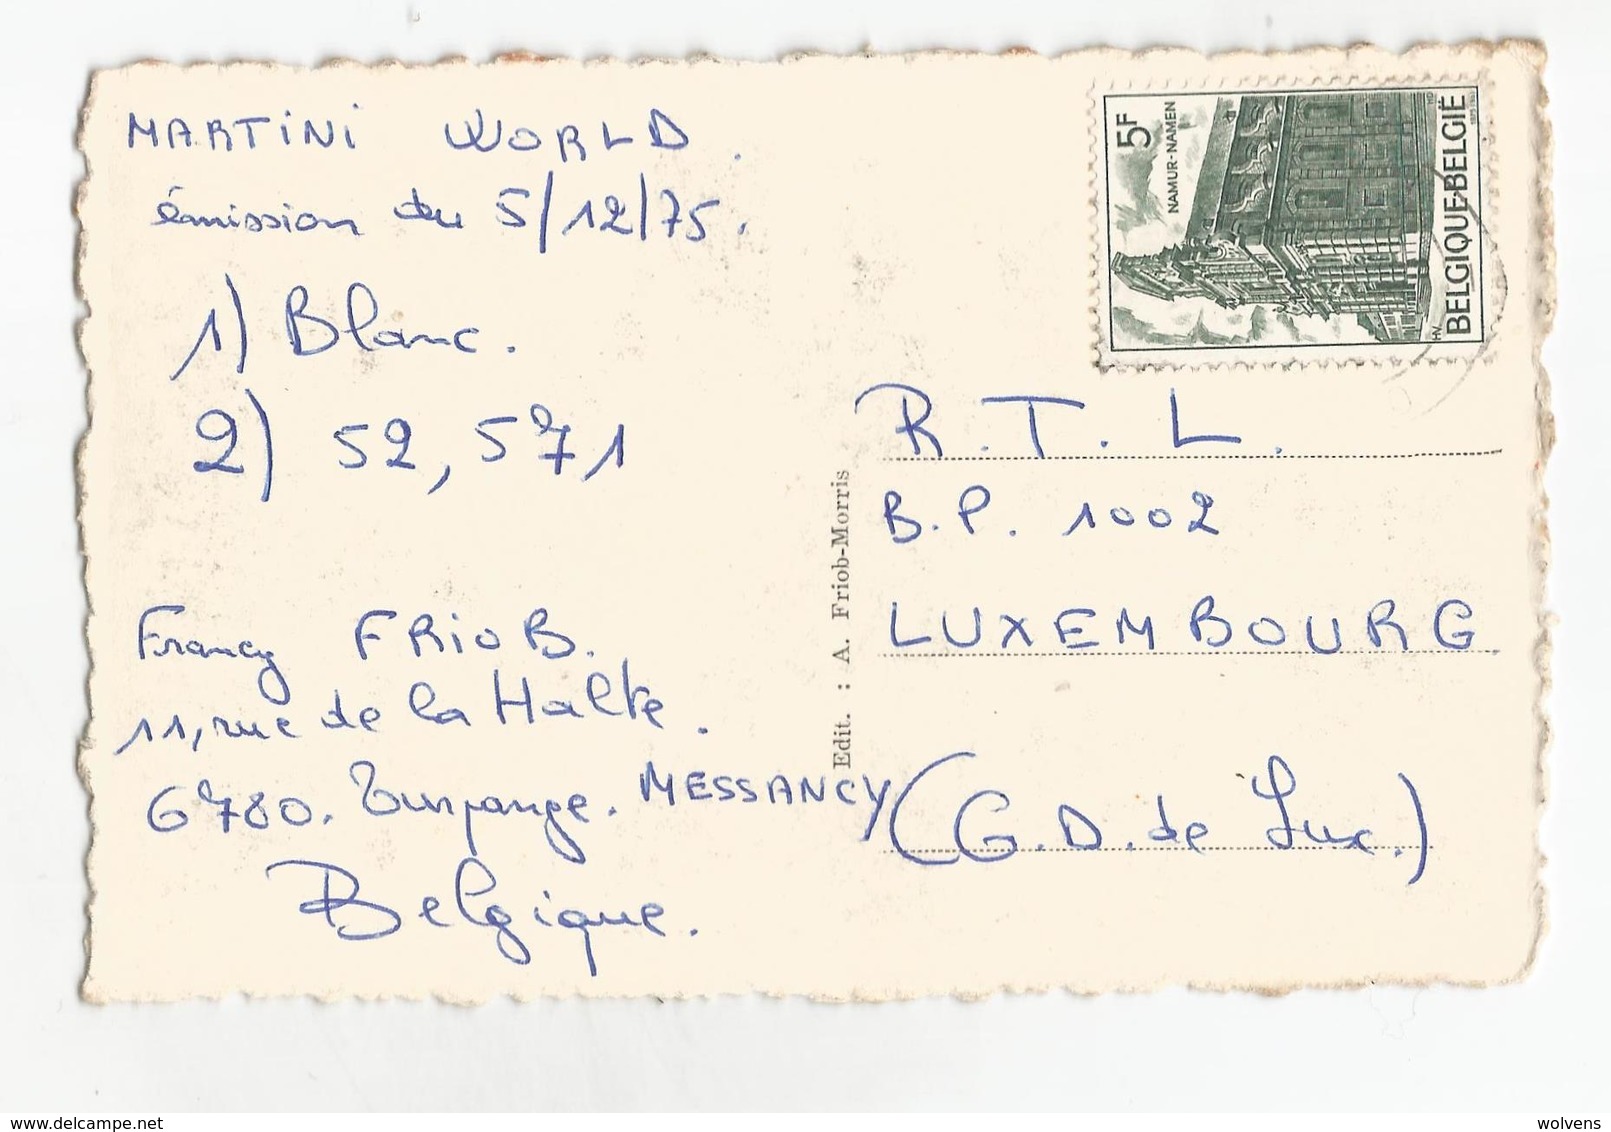 MARTINI WORLD.
émission du 5/12/75.
1) Blanc.
2) 52,571
Francy FRIOB.
11, rue de la Halte.
6780. Turpange. MESSANCY
Belgique.
Edit. : A. Friob-Morris
5F
NAMUR-NAMEN
BELGIQUE-BELGIË
HV
R.T.L.
B.P. 1002
LUXEMBOURG.
(G.D. de Lux.)
delcampe.net
wolvens